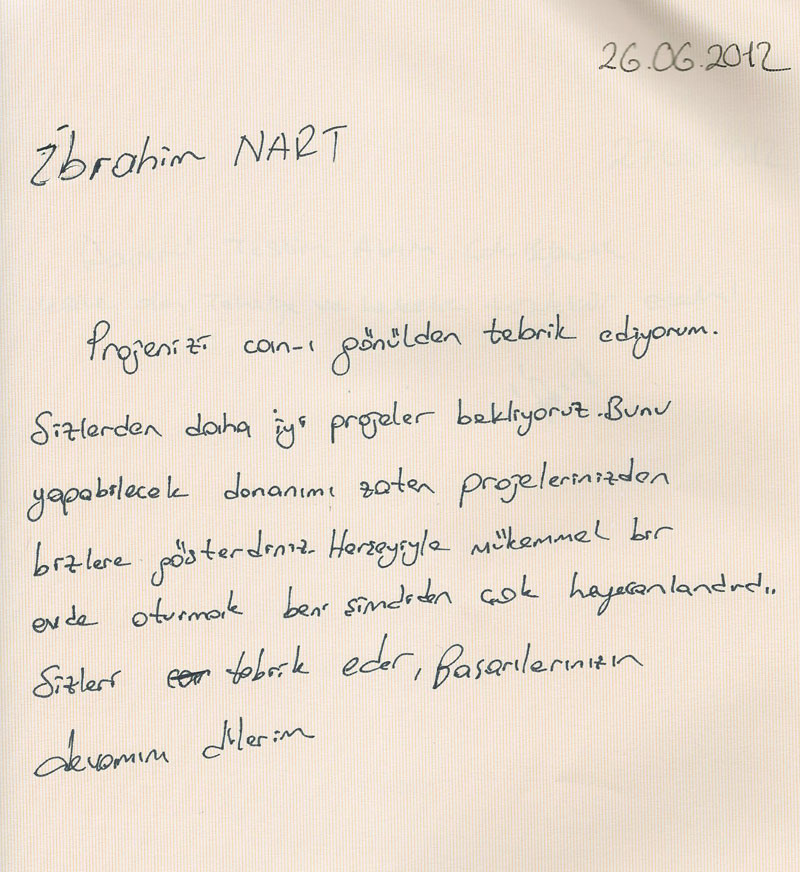 26.06.2012
İbrahim NART
Projenizi can-ı gönülden tebrik ediyorum.
Sizlerden daha iyi projeler bekliyoruz. Bunu
yapabilecek donanımı zaten projelerinizden
bizlere gösterdiniz. Herşeyiyle mükemmel bir
evde oturmak beni şimdiden çok heyecanlandırdı..
Sizleri tebrik eder, Başarılarınızın
devamını dilerim